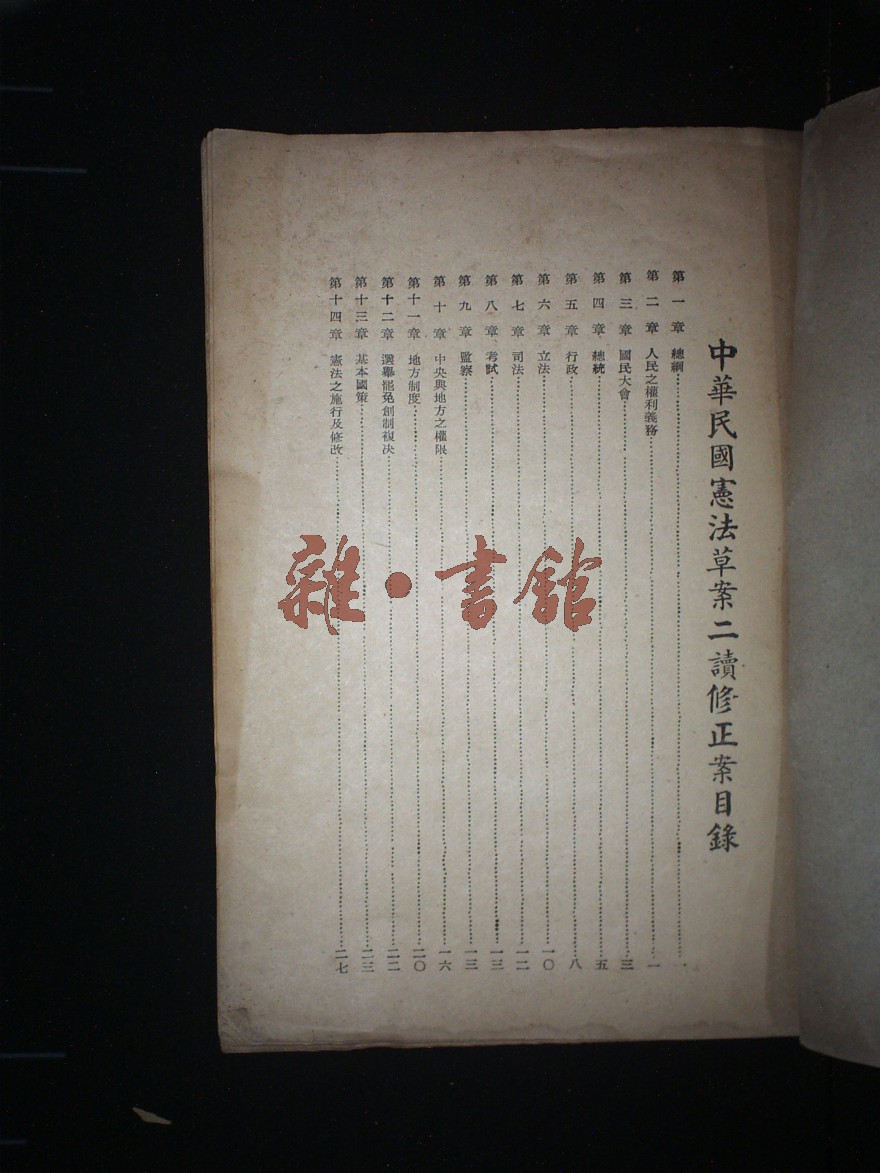 中華民國憲法草案二讀修正案目錄
第一章 總綱……一
第二章 人民之權利義務……一
第三章 國民大會……三
第四章 總統……五
第五章 行政……八
第六章 立法……一〇
第七章 司法……一二
第八章 考試……一三
第九章 監察……一三
第十章 中央與地方之權限……一六
第十一章 地方制度……二〇
第十二章 選舉罷免創制複决……二二
第十三章 基本國策……二三
第十四章 憲法之施行及修改……二七
雜·書館